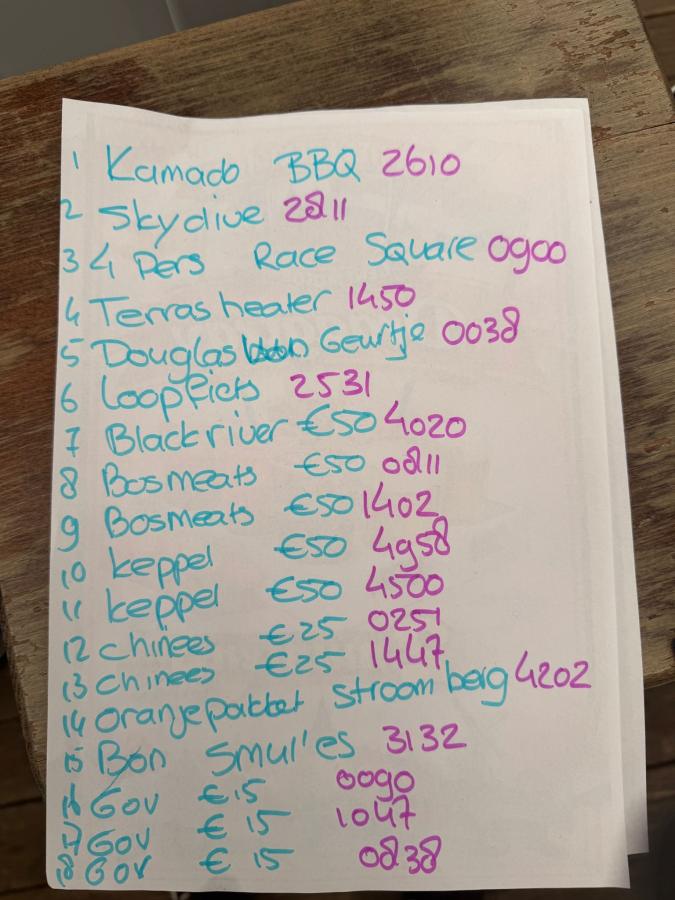 1 Kamado BBQ 2610
2 Skydive 2811
3 4 Pers Race Square 0900
4 Terras heater 1450
5 Douglas Geurtje 0038
6 Loopfiets 2531
7 Blackriver €50 4020
8 Bosmeats €50 0811
9 Bosmeats €50 1402
10 keppel €50 4958
11 keppel €50 4500
12 chinees €25 0251
13 chinees €25 1447
14 oranjepakket stroomberg 4202
15 Bon Smul'es 3132
16 Gov €15 0090
17 Gov €15 1047
18 Gov €15 0838